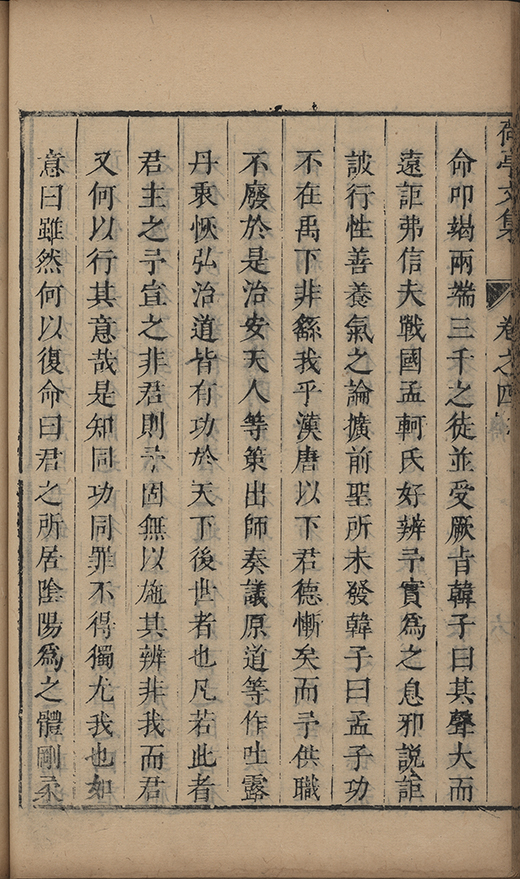 荷亭文集 卷之四 六
命叩竭兩端三千之徒並受厥旨韓子曰其聲大而
遠詎弗信夫戰國孟軻氏好辨予實爲之息邪説詎
詖行性善養氣之論擴前聖所未發韓子曰孟子功
不在禹下非繇我乎漢唐以下君德慚矣而予供職
不廢於是治安天人等策出師奏議原道等作吐露
丹衷恢弘治道皆有功於天下後世者也凡若此者
君主之予宣之非君則予固無以施其辨非我而君
又何以行其意哉是知同功同罪不得獨尤我也如
意曰雖然何以復命曰君之所居陰陽爲之體剛柔